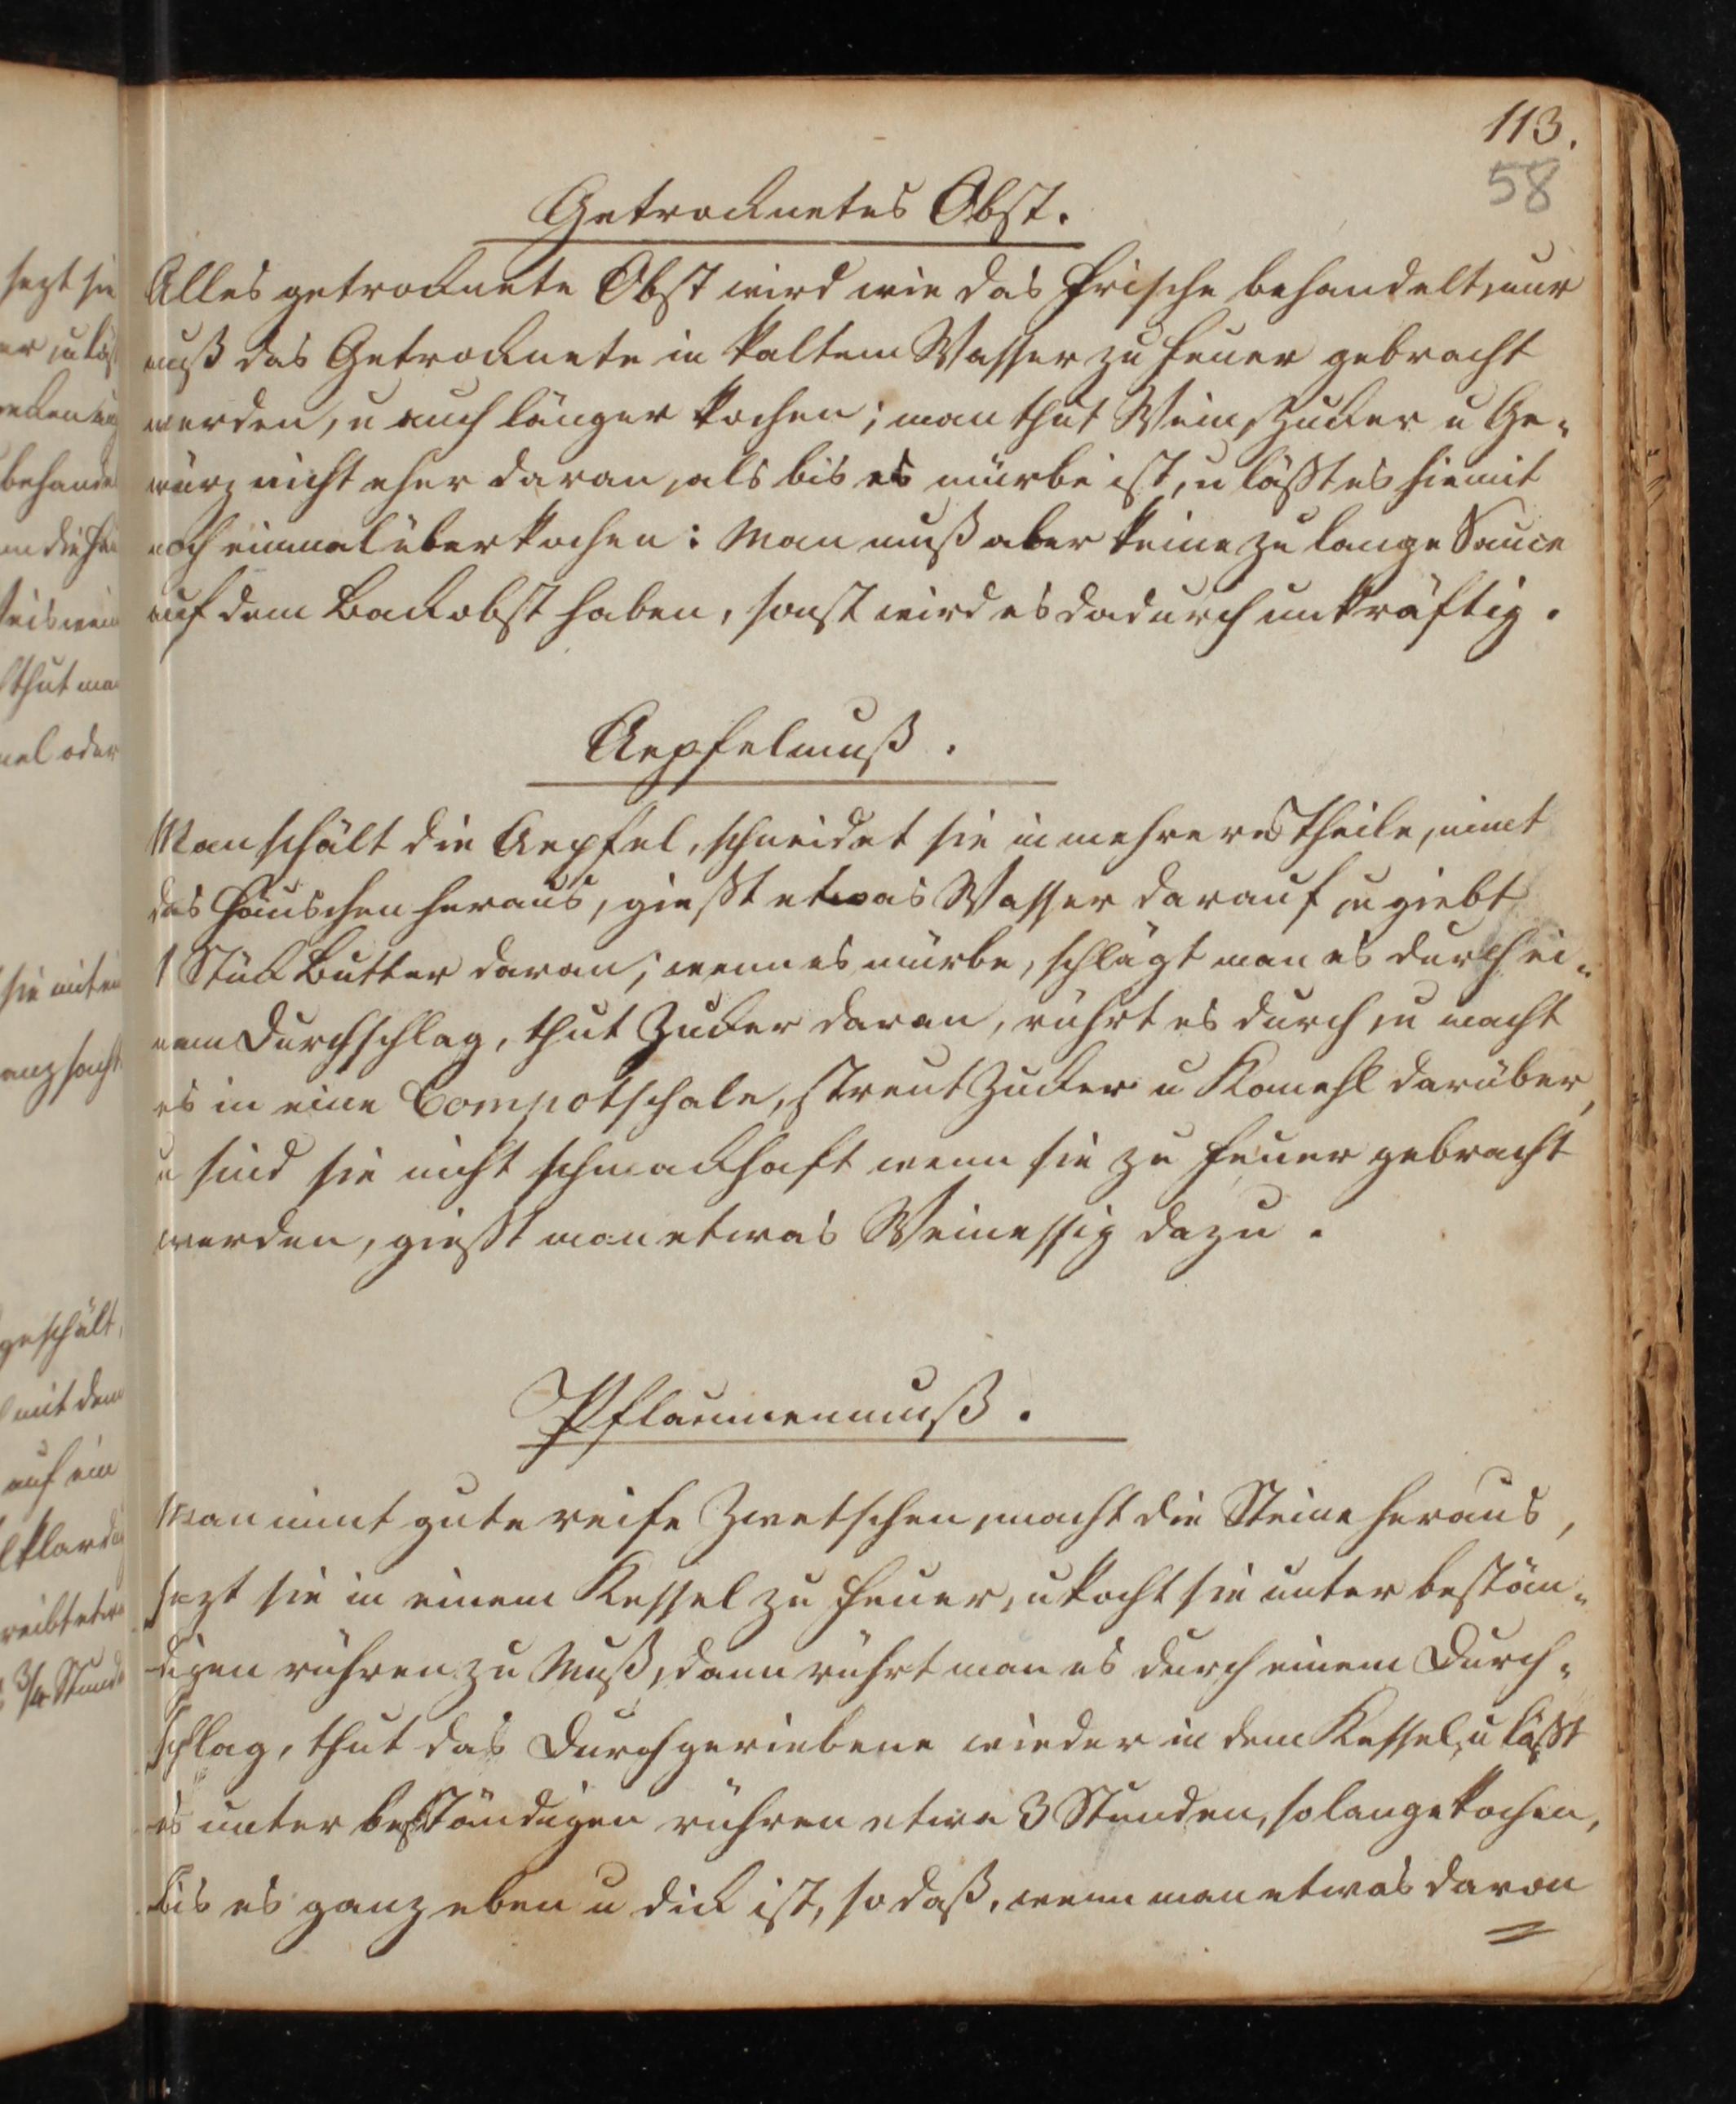 113.
58
Getrocknetes Obst.
Alles getrocknete Obst wird wie das frische behandelt, nur
muß das Getrocknete in kaltem Wasser zu Feuer gebracht
werden, u auch länger kochen; man thut Wein, Zucker u Ge-
würz nicht eher daran, als bis es mürbe ist, u läßt es hiemit
noch einmal überkochen: Man muß aber keine zu lange Sauce
auf dem Backobst haben, sonst wird es dadurch unkräftig.
Aepfelmuß.
Man schält die Aepfel, schneidet sie in mehrere Theile, nimt
das Häuschen heraus, gießt etwas Wasser darauf u giebt
1 Stück Butter daran; wenn es mürbe, schlägt man es durch ei-
nem Durchschlag, thut Zucker daran, rührt es durch, u macht
es in eine Compotschale, streut Zucker u Kanehl darüber,
u sind sie nicht schmackhaft wenn sie zu Feuer gebracht
werden, gießt man etwas Weinessig dazu.
Pflaumenmuß.
Man nimt gute reife Zwetschen, macht die Steine heraus,
sezt sie in einem Kessel zu Feuer, u kocht sie unter bestän-
digen rühren zu Muß, dann rührt man es durch einem Durch-
schlag, thut das Durchgeriebene wieder in dem Kessel, u läßt
es unter beständigen rühren etwa 3 Stunden, so lange kochen,
bis es ganz eben u dick ist, so daß, wenn man etwas davon
sezt sie
behande
thut ma
nel oder
sie mit ei
geschält,
mit dem
auf ein
3/4 Stund